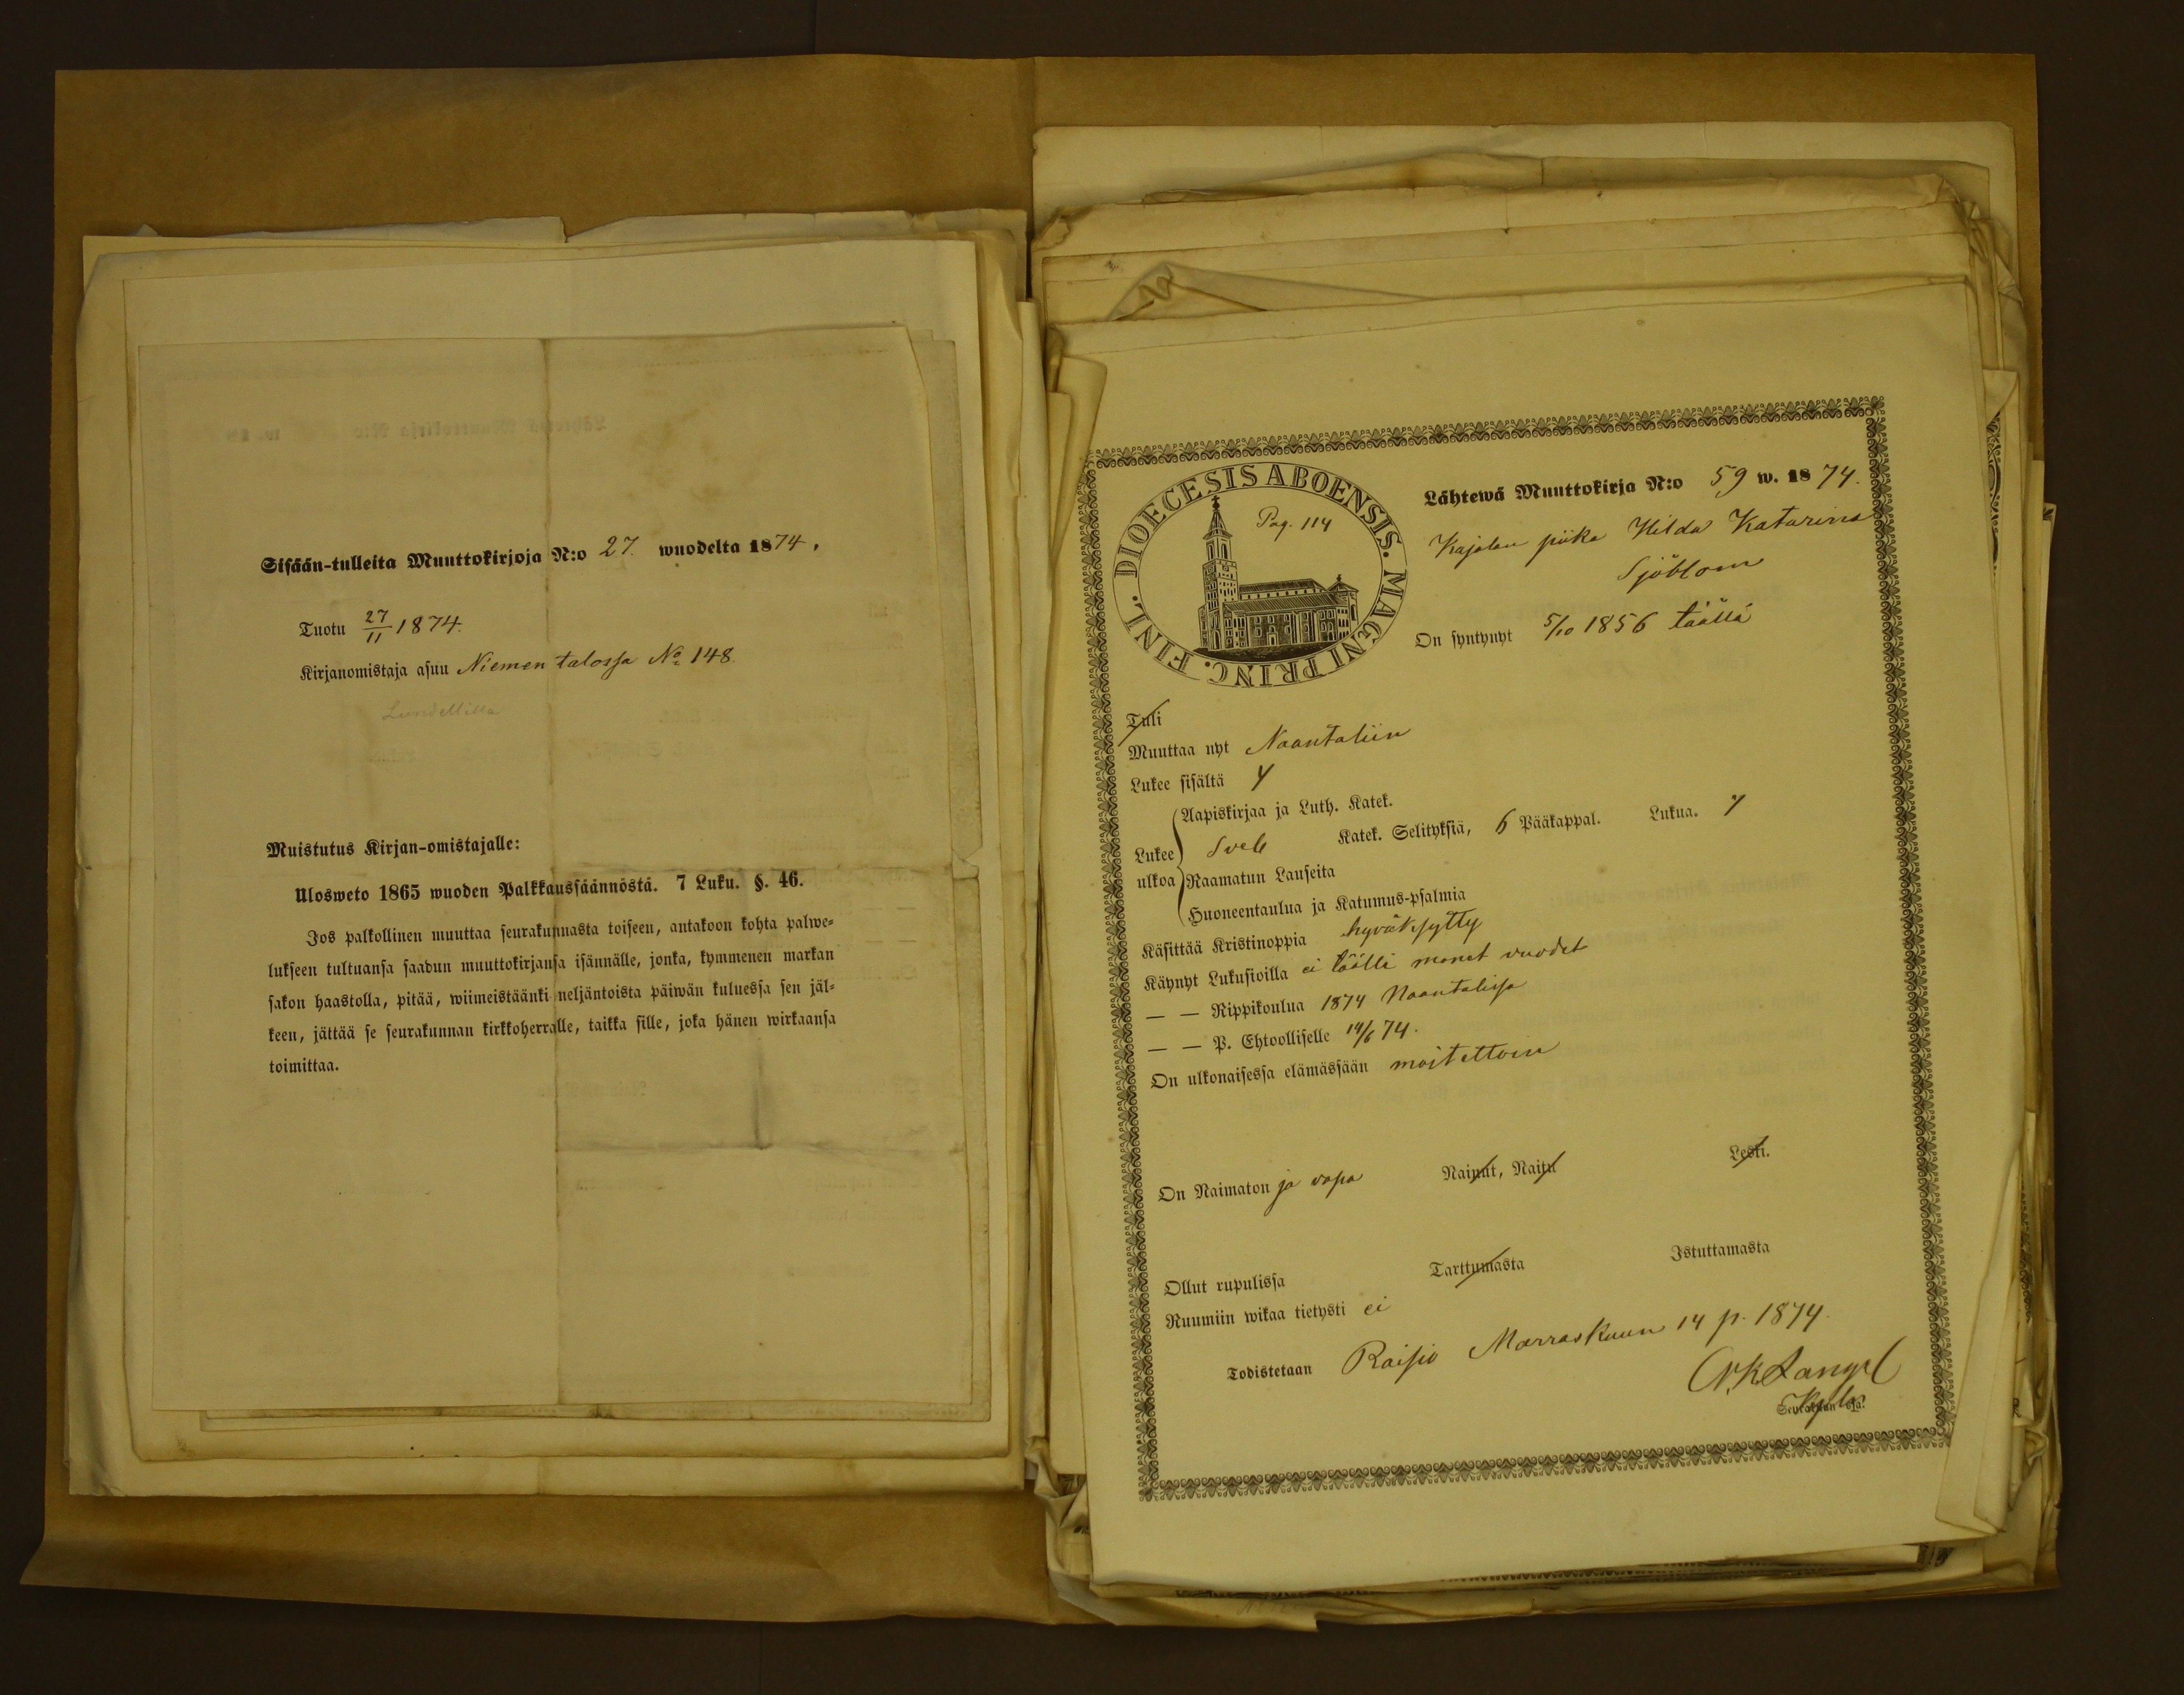 Sisään-tulleita Muuttokirjoja N:o 27. wuodelta 1874.
Tuotu 27/11 1874.
Kirjanomistaja asuu Niemen talossa No 148
Lundellilla
Muistutus Kirjan-omistajalle:
Ulosweto 1865 wuoden Palkkaussäännöstä. 7 Luku. §. 46.
Jos palkollinen muuttaa seurakunnasta toiseen, antakoon kohta palwe-
lukseen tultuansa saadun muuttokirjansa isännälle, jonka, kymmenen markan
sakon haastolla, pitää, wiimeistäänki neljäntoista päiwän kuluessa sen jäl-
keen, jättää se seurakunnan kirkkoherralle, taikka sille, joka hänen wirkaansa
toimittaa.
DIOECESIS ABOENSIS. MAGNI PRINC. FINL.
Pag. 114
Lähtewä Muuttokirja N:o 59 w. 1874.
Kajalan piika Hilda Katarina
Sjöblom
On syntynyt 5/10 1856 täällä
Tuli
Muuttaa nyt Naantaliin
Lukee sisältä
Lukee ulkoa
Aapiskirjaa ja Luth. Katek.
Sveb Katek. Selityksiä, 6 Pääkappal. Lukua.
Raamatun Lauseita
Huoneentaulua ja Katumus-psalmia
Käsittää Kristinoppia hyväksytty
Käynyt Lukusioilla ei täällä monet vuodet
— — Rippikoulua 1874 Naantalissa
— — P. Ehtoolliselle 14/6 74.
On ulkonaisessa elämässään moitettoin
On Naimaton ja vapa Nainut, Naitu Leski.
Ollut rupulissa Tarttumasta Istuttamasta
Ruumiin wikaa tietysti ei
Todistetaan Raisio Marraskuun 14 p. 1874.